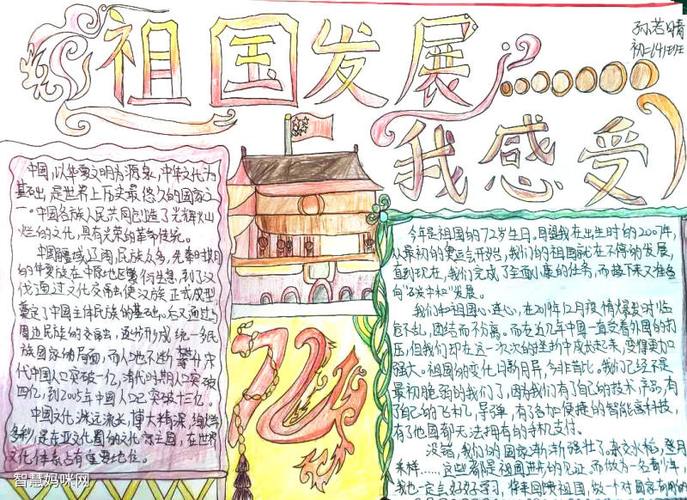 祖国发展
我感受
孙若晴
初二14班
中国，以华夏文明为源泉，中华文化为
基础，是世界上历史最悠久的国家之
一。中国各族人民共同创造了光辉灿
烂的文化，具有光荣的革命传统。
中国疆域辽阔，民族众多，先秦时期
的华夏族在中原地区繁衍生息，到了汉
代通过文化交流使汉族正式成型
奠定了中国主体民族的基础。后又通过与
周边民族的交流，逐步形成统一多民
族国家的局面，而人口也不断攀升
代中国人口突破一亿，清代时期人口突破
四亿，到2005年中国人口突破十三亿。
中国文化渊远流长、博大精深、绚烂
多彩，是东亚文化圈的文化宗主国，在世界
文化体系占有重要地位。
72
今年是祖国的72岁生日，回望我在出生时的2007年
从最初的奥运会开始，我们的祖国就在不停的发展，
直到现在，我们完成了全面小康的任务，而接下来又准备
向“碳中和”发展。
我们和祖国心连心，在2019年12月疫情爆发时临
危不乱，团结而不分离。而在近几年中国一直受着外国的打
压，但我们却在这一次次的挫折中成长起来，变得更加
强大。祖国的变化日新月异，今非昔比。我们已经不是
最初脆弱的我们了，因为我们有了自己的技术、产品，有
了自己的飞机，导弹，有了各加便捷的智能高科技，
有了他国都无法拥有的手机支付。
没错，我们的国家渐渐强壮了。杂交水稻，登月
采样……这些都是祖国进步的见证，而做为一名青少年，
我也一定会好好学习，将来回馈祖国，做一个对国家有用的
智慧妈咪网